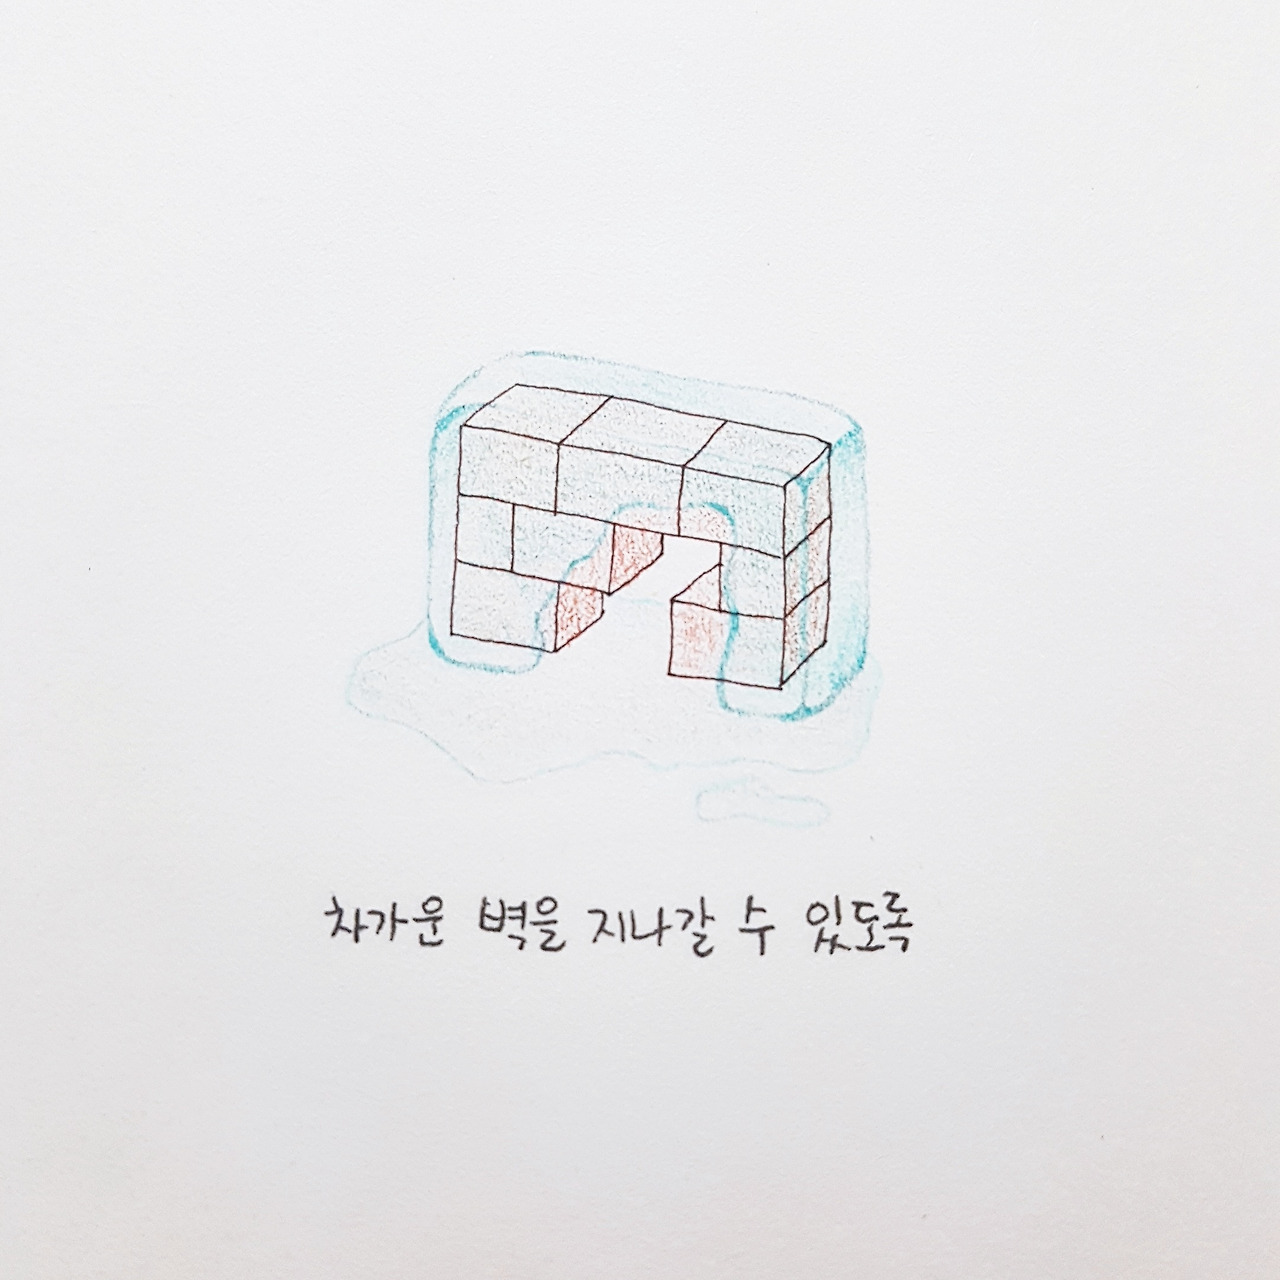 차가운 벽을 지나갈 수 있도록